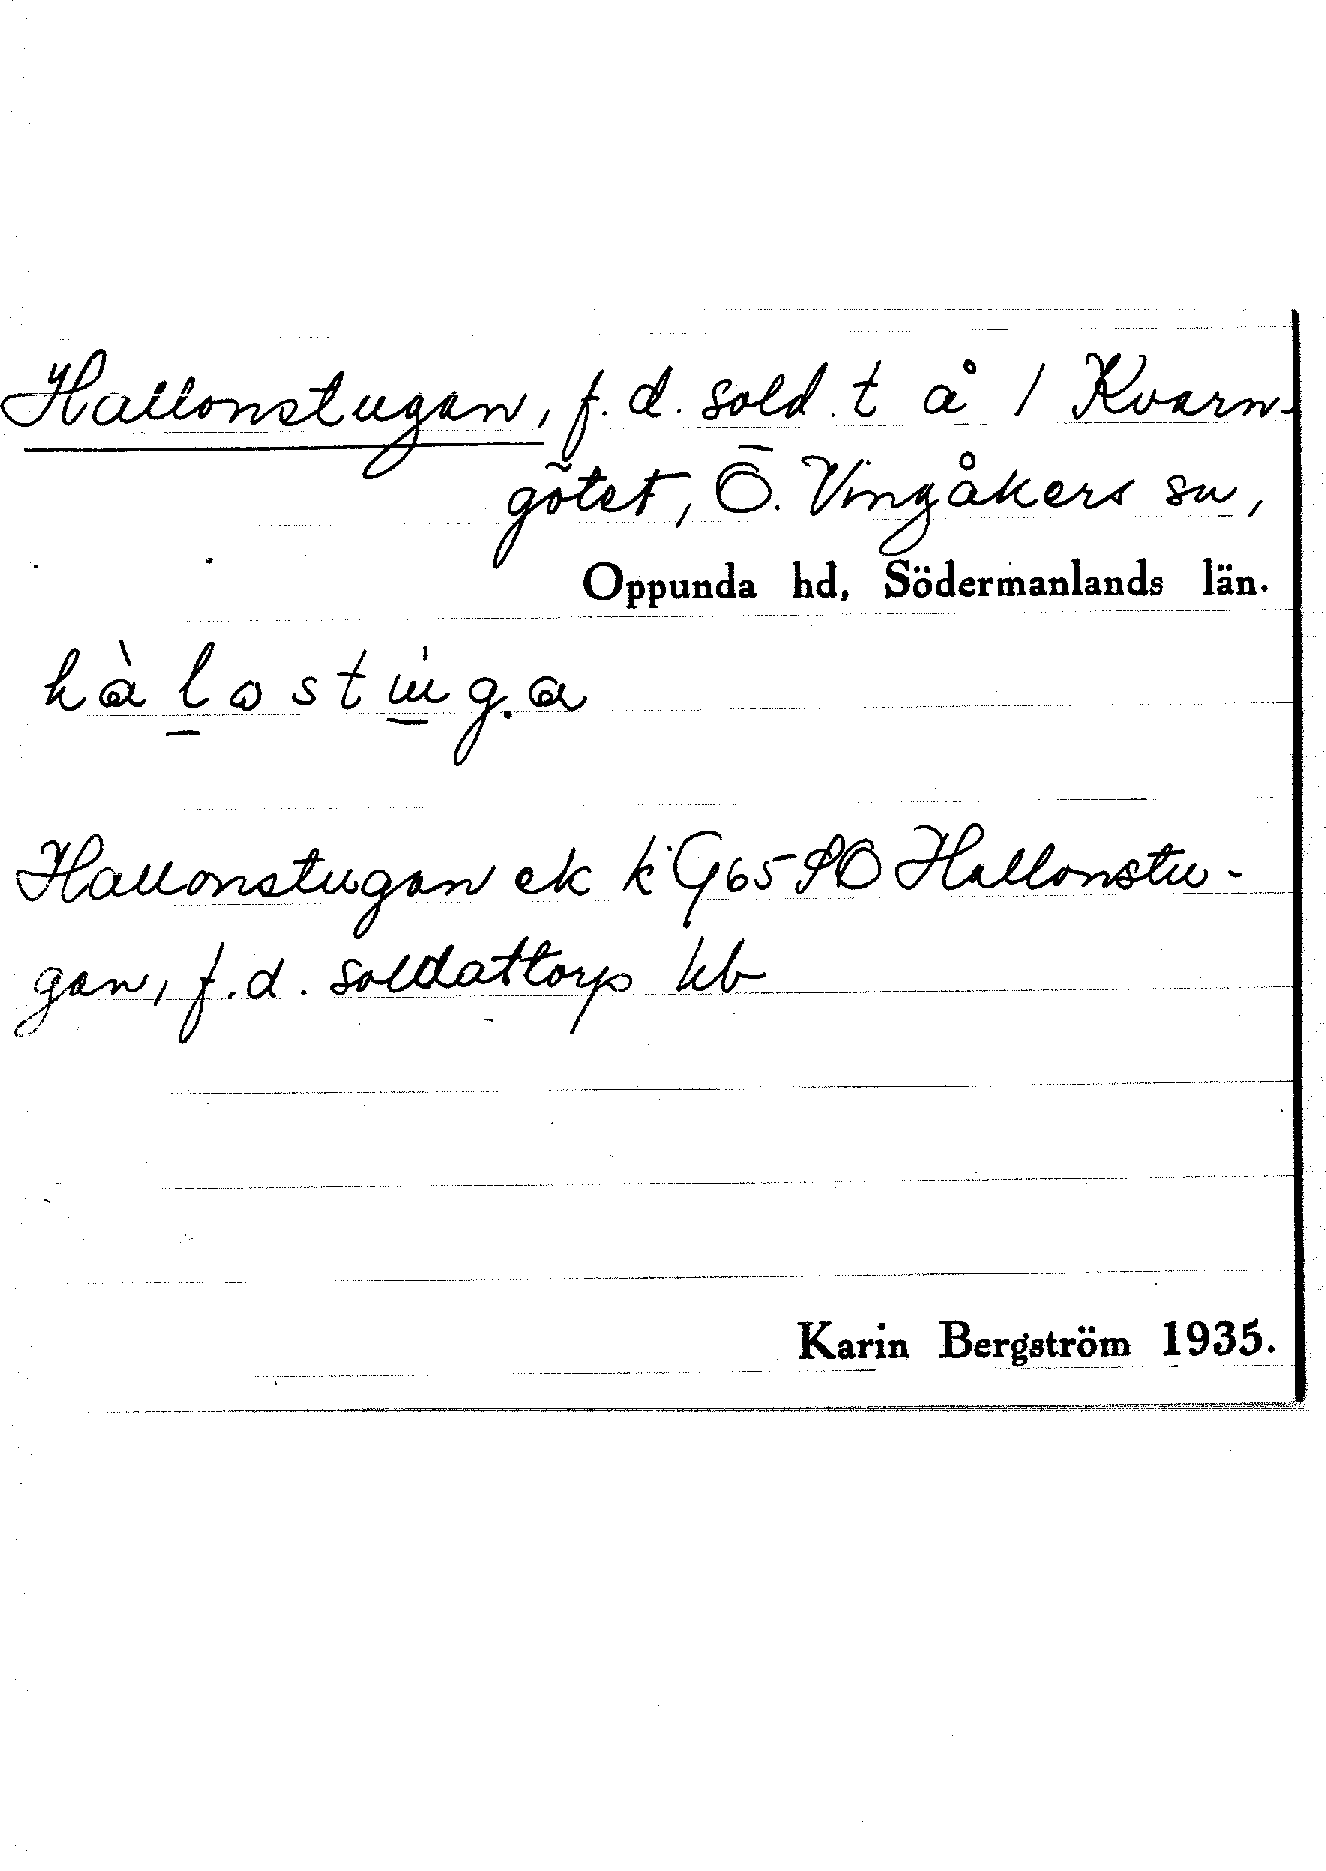 Hallonstugan, f.d. sold.t å 1 Kvarn-
götet, Ö. Vingåkers sn,
Oppunda hd, Södermanlands län.
Hallonstugan ek k G65 SO Hallonstu-
gan, f.d. soldattorp kb
Karin Bergström 1935.